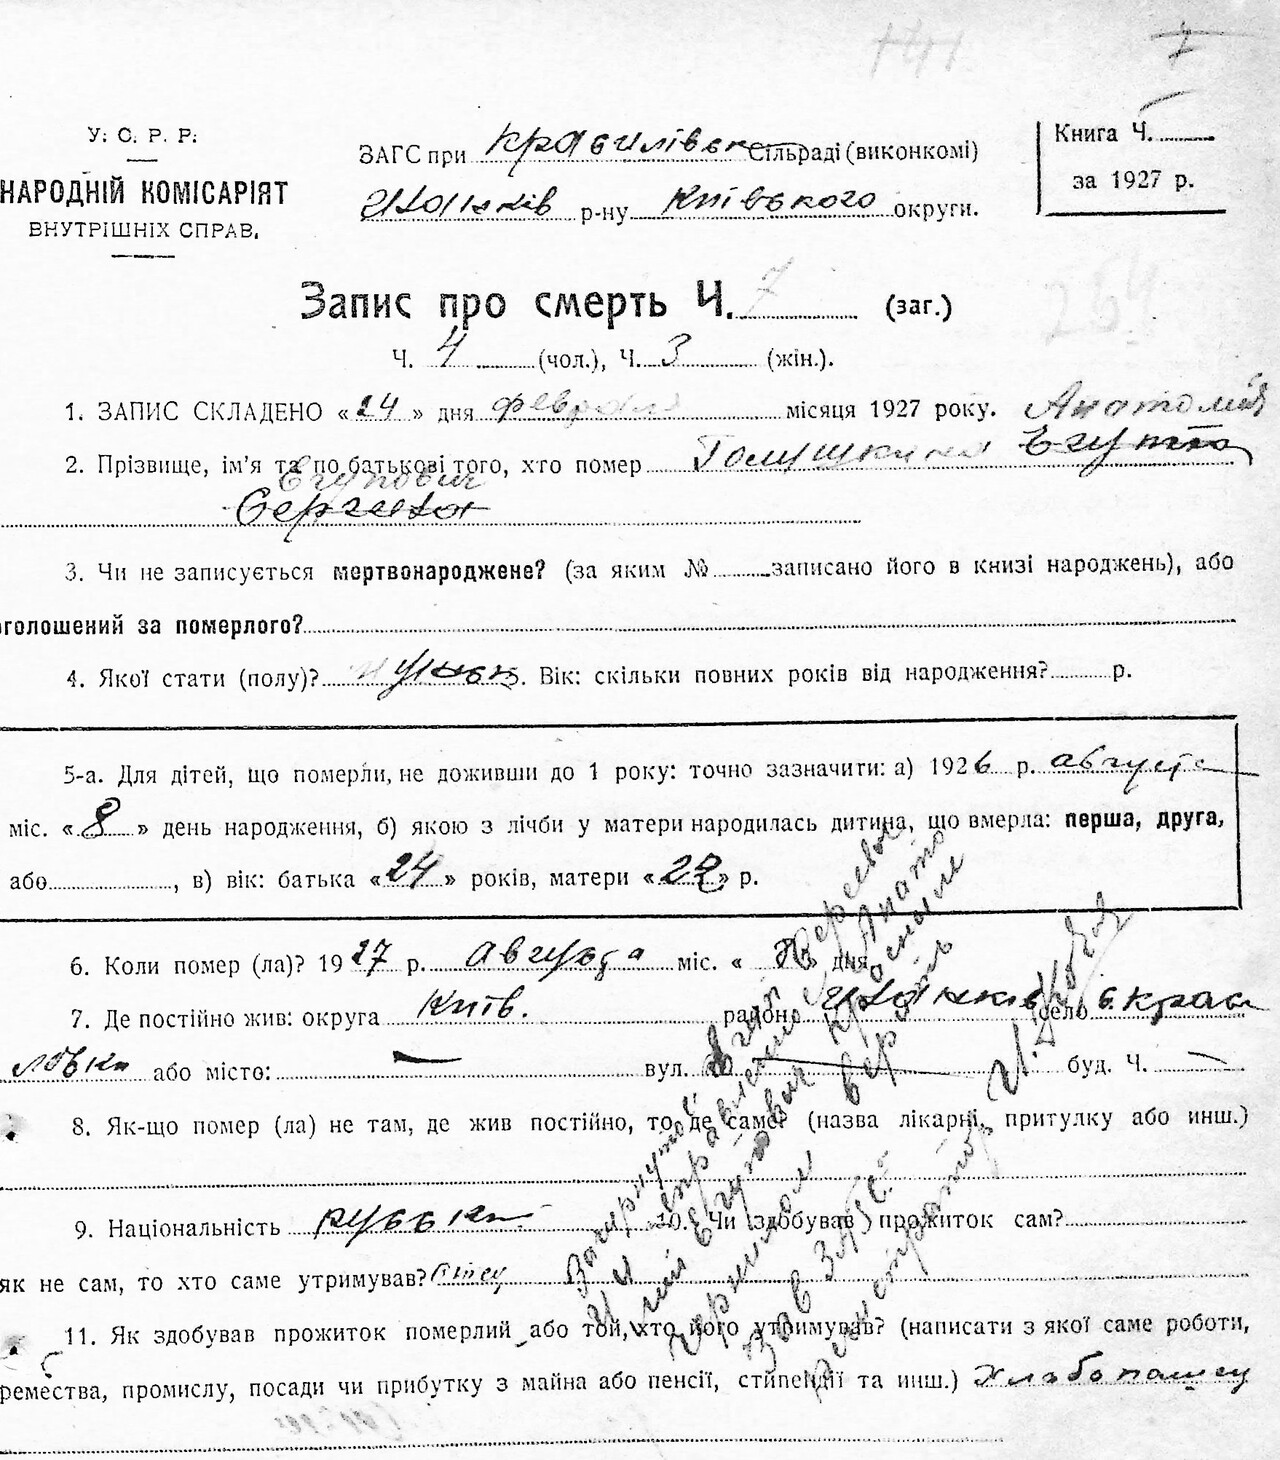 7
У. С. Р. Р.
НАРОДНІЙ КОМІСАРІЯТ
ВНУТРІШНІХ СПРАВ.
ЗАГС при Красилівск Сільраді (виконкомі)
р-ну Київського округи.
Книга Ч.
за 1927 р.
Запис про смерть Ч. 7 (заг.)
264
Ч. 4 (чол.), Ч. 3 (жін.).
1. ЗАПИС СКЛАДЕНО «24» дня февраля місяця 1927 року. Анатолий
2. Прізвище, ім'я та по батькові того, хто помер Голушкина
Сергеевна
3. Чи не записується мертвонароджене? (за яким № записано його в книзі народжень), або
оголошений за померлого?
4. Якої стати (полу)? мужск. Вік: скільки повних років від народження? р.
5-а. Для дітей, що померли, не доживши до 1 року: точно зазначити: а) 1926 р. августа
міс. «8» день народження, б) якою з лічби у матери народилась дитина, що вмерла: перша, друга,
або , в) вік: батька «24» років, матери «22» р.
6. Коли помер (ла)? 1927 р. Августа міс. « » дня
7. Де постійно жив: округа Київ. район село с. Краси
ловка або місто: — вул. буд. Ч. —
8. Як-що помер (ла) не там, де жив постійно, то де саме? (назва лікарні, притулку або инш.)
9. Національність русск 10. Чи здобував прожиток сам?
як не сам, то хто саме утримував? отец
11. Як здобував прожиток померлий або той, хто його утримував? (написати з якої саме роботи,
ремества, промислу, посади чи прибутку з майна або пенсії, стипендії та инш.) Хлебопашец